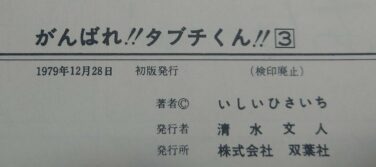 がんばれ!!タブチくん!! 3
1979年12月28日 初版発行 (検印廃止)
著者© いしいひさいち
発行者 清水文人
発行所 株式会社 双葉社